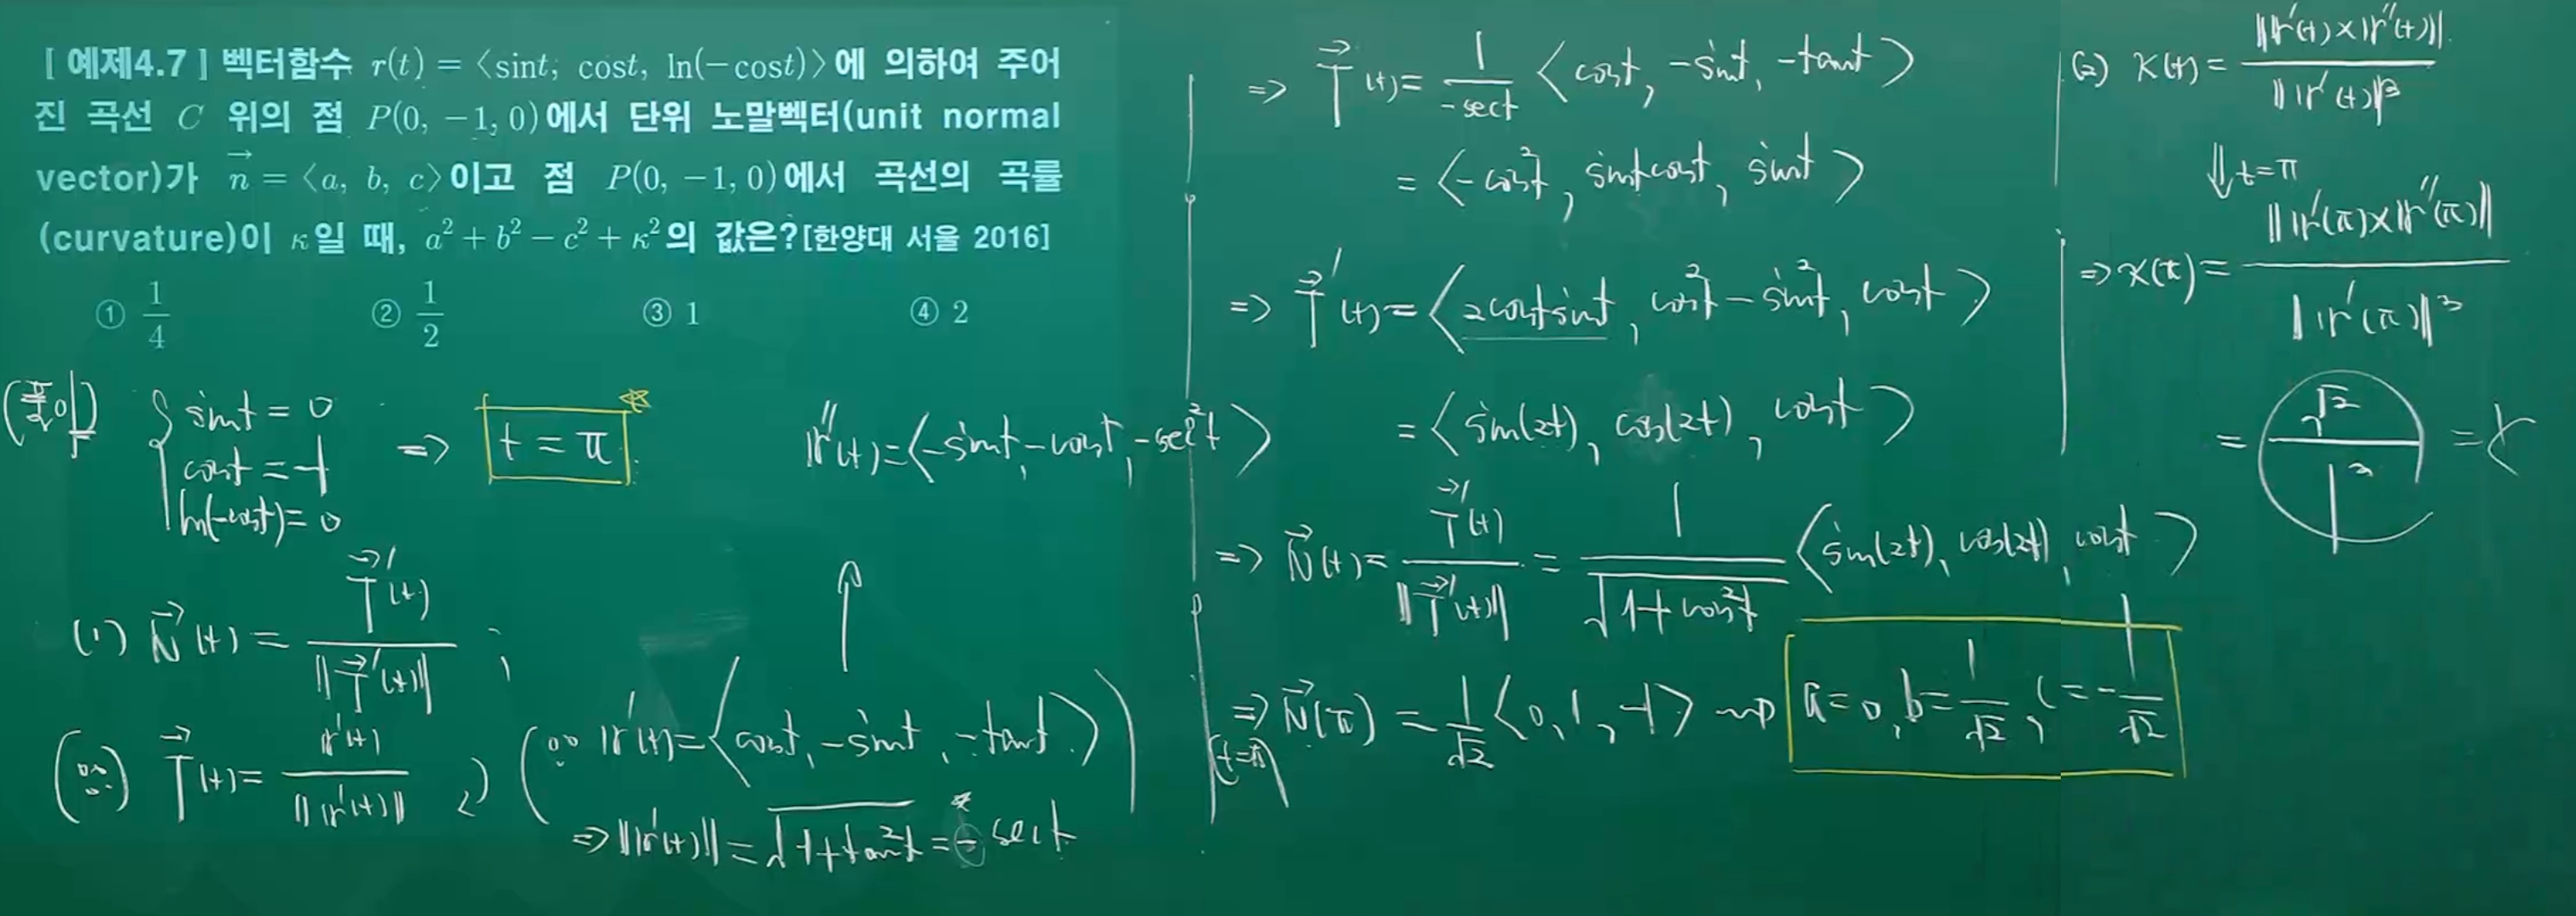 [ 예제4.7 ] 벡터함수 r(t) = ⟨sint, cost, ln(−cost)⟩에 의하여 주어
진 곡선 C 위의 점 P(0, −1, 0)에서 단위 노말벡터(unit normal
vector)가 n⃗ = ⟨a, b, c⟩이고 점 P(0, −1, 0)에서 곡선의 곡률
(curvature)이 κ일 때, a² + b² − c² + κ²의 값은?[한양대 서울 2016]
① 1/4 ② 1/2 ③ 1 ④ 2
(풀이) { sint = 0
cost = −1
ln(−cost) = 0
⇒ t = π
(1) N⃗(t) = T⃗'(t) / ||T⃗'(t)|| ;
(∵) T⃗(t) = r'(t) / ||r'(t)||
(∵ r'(t) = ⟨cost, −sint, −tant⟩)
⇒ ||r'(t)|| = √(1+tan²t) = − sect
r''(t) = ⟨−sint, −cost, −sec²t⟩
⇒ T⃗(t) = 1/(−sect) ⟨cost, −sint, −tant⟩
= ⟨−cos²t, sintcost, sint⟩
⇒ T⃗'(t) = ⟨2costsint, cos²t − sin²t, cost⟩
= ⟨sin(2t), cos(2t), cost⟩
⇒ N⃗(t) = T⃗'(t) / ||T⃗'(t)|| = 1/√(1+cos²t) ⟨sin(2t), cos(2t), cost⟩
⇒ (t=π) N⃗(π) = 1/√2 ⟨0, 1, −1⟩ ⇝ a = 0, b = 1/√2, c = −1/√2
(2) κ(t) = ||r'(t) × r''(t)|| / ||r'(t)||³
⇓ t = π
⇒ κ(π) = ||r'(π) × r''(π)|| / ||r'(π)||³
= √2 / 1³ =